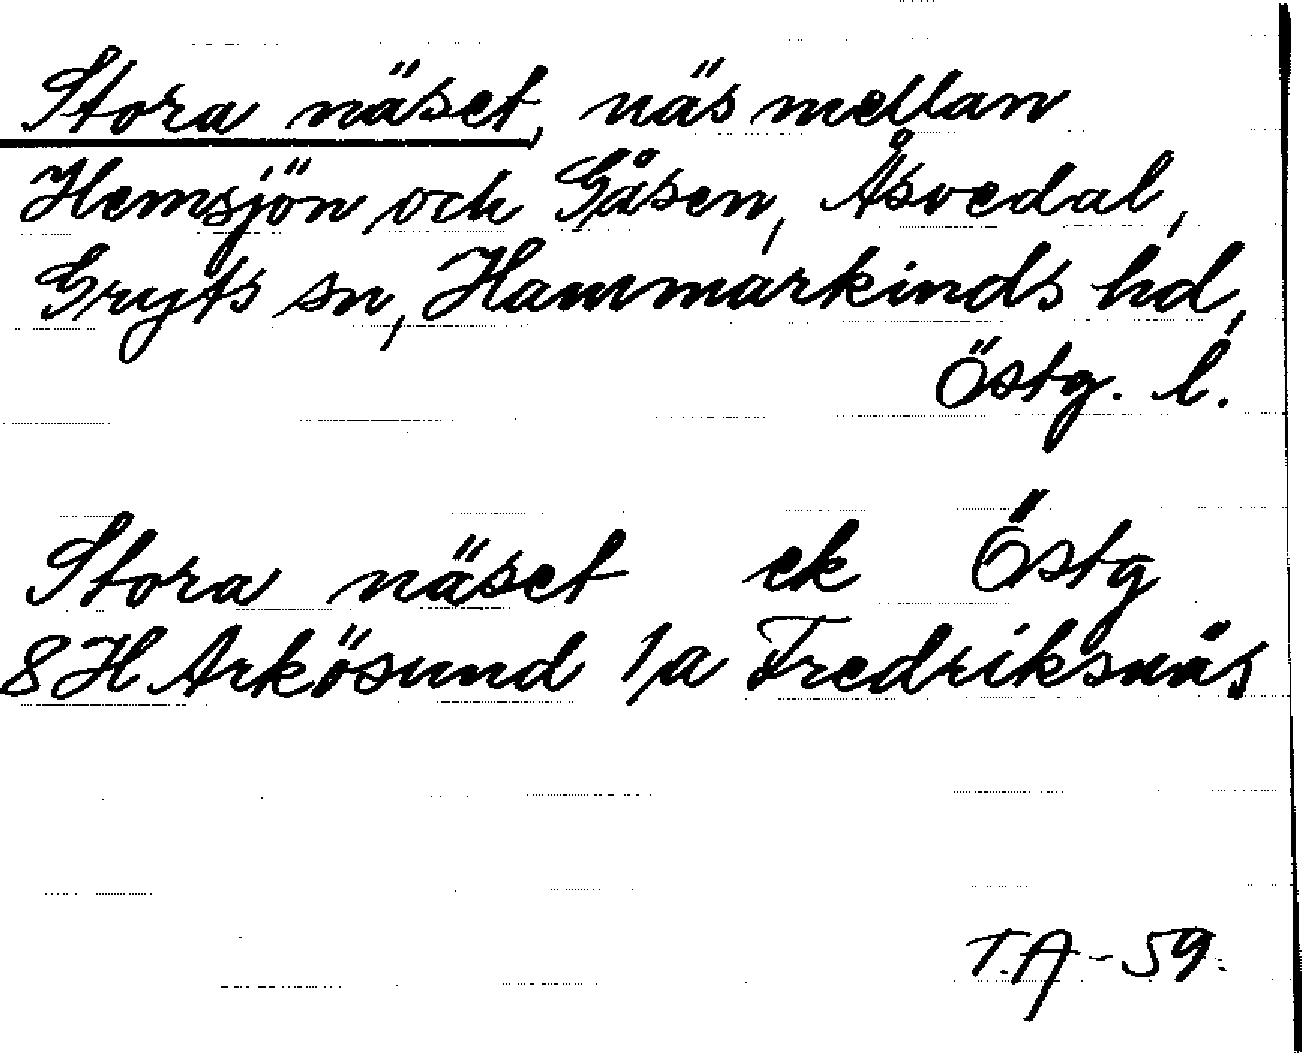 Stora näset, näs mellan
Hemsjön och Gåsen, Åsvedal,
Gryts sn, Hammarkinds hd,
Östg. l.
Stora näset ek Östg
8H Arkösund 1/a Fredriksnäs
T.A-59.